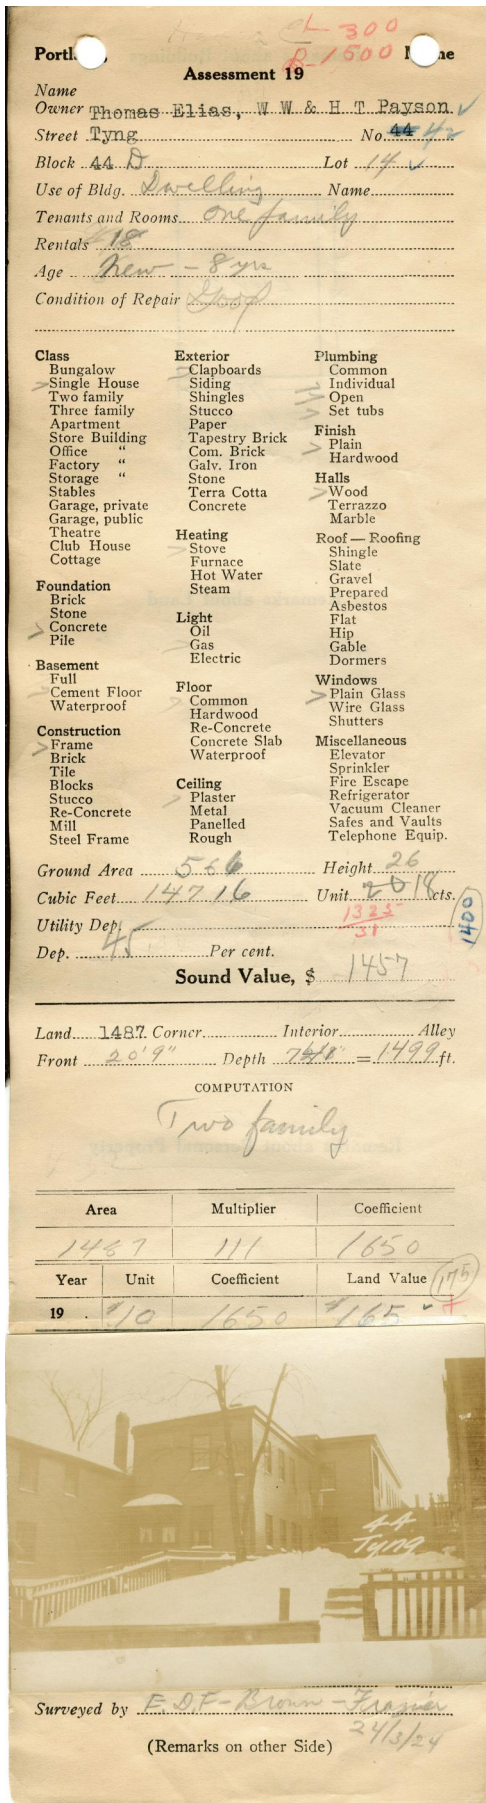 L 300
B 1500
Portl Me
Assessment 19
Name
Owner Thomas Elias, W W & H T Payson
Street Tyng No. 44 42
Block 44 D Lot 14
Use of Bldg. Dwelling Name
Tenants and Rooms one family
Rentals 18
Age New - 8 yrs
Condition of Repair Good
Class
Bungalow
Single House
Two family
Three family
Apartment
Store Building
Office "
Factory "
Storage "
Stables
Garage, private
Garage, public
Theatre
Club House
Cottage
Foundation
Brick
Stone
Concrete
Pile
Basement
Full
Cement Floor
Waterproof
Construction
Frame
Brick
Tile
Blocks
Stucco
Re-Concrete
Mill
Steel Frame
Exterior
Clapboards
Siding
Shingles
Stucco
Paper
Tapestry Brick
Com. Brick
Galv. Iron
Stone
Terra Cotta
Concrete
Heating
Stove
Furnace
Hot Water
Steam
Light
Oil
Gas
Electric
Floor
Common
Hardwood
Re-Concrete
Concrete Slab
Waterproof
Ceiling
Plaster
Metal
Panelled
Rough
Plumbing
Common
Individual
Open
Set tubs
Finish
Plain
Hardwood
Halls
Wood
Terrazzo
Marble
Roof — Roofing
Shingle
Slate
Gravel
Prepared
Asbestos
Flat
Hip
Gable
Dormers
Windows
Plain Glass
Wire Glass
Shutters
Miscellaneous
Elevator
Sprinkler
Fire Escape
Refrigerator
Vacuum Cleaner
Safes and Vaults
Telephone Equip.
Ground Area 566 Height 26
Cubic Feet 14716 Unit 20 18 cts.
Utility Dep. 1325
31
1400
Dep. 45 Per cent.
Sound Value, $ 1457
Land 1487 Corner Interior Alley
Front 20'9" Depth = 1499 ft.
COMPUTATION
Two family
Area Multiplier Coefficient
1487 111 1650
Year Unit Coefficient Land Value 175
19 . $10 1650 $165
44
Tyng
Surveyed by E.D.F - Brown - Frazier
24/3/24
(Remarks on other Side)